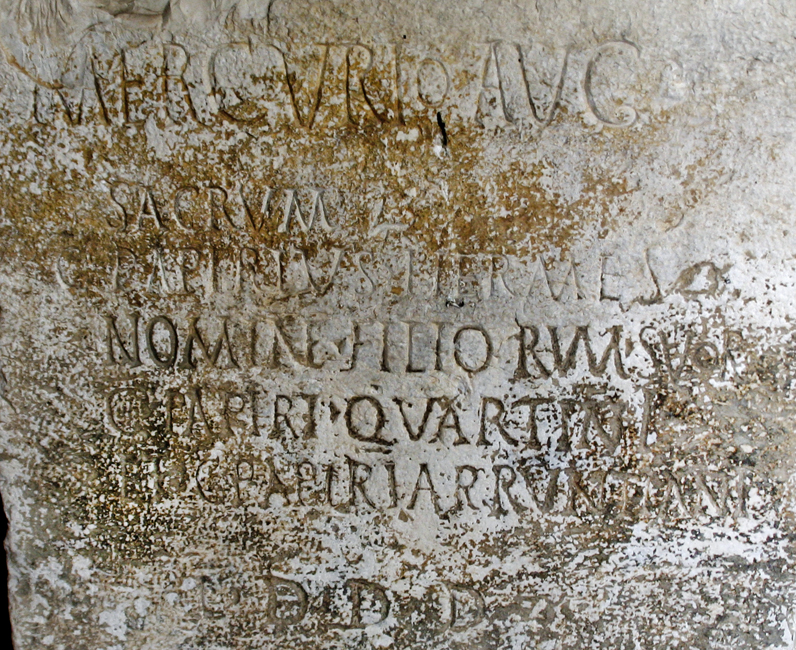 MERCVRIO AVG
SACRVM
C PAPIRIVS HERMES
NOMINE FILIORVM SVOR
C PAPIRI QVARTINI
C PAPIRI ARRVNTIANI
D D D